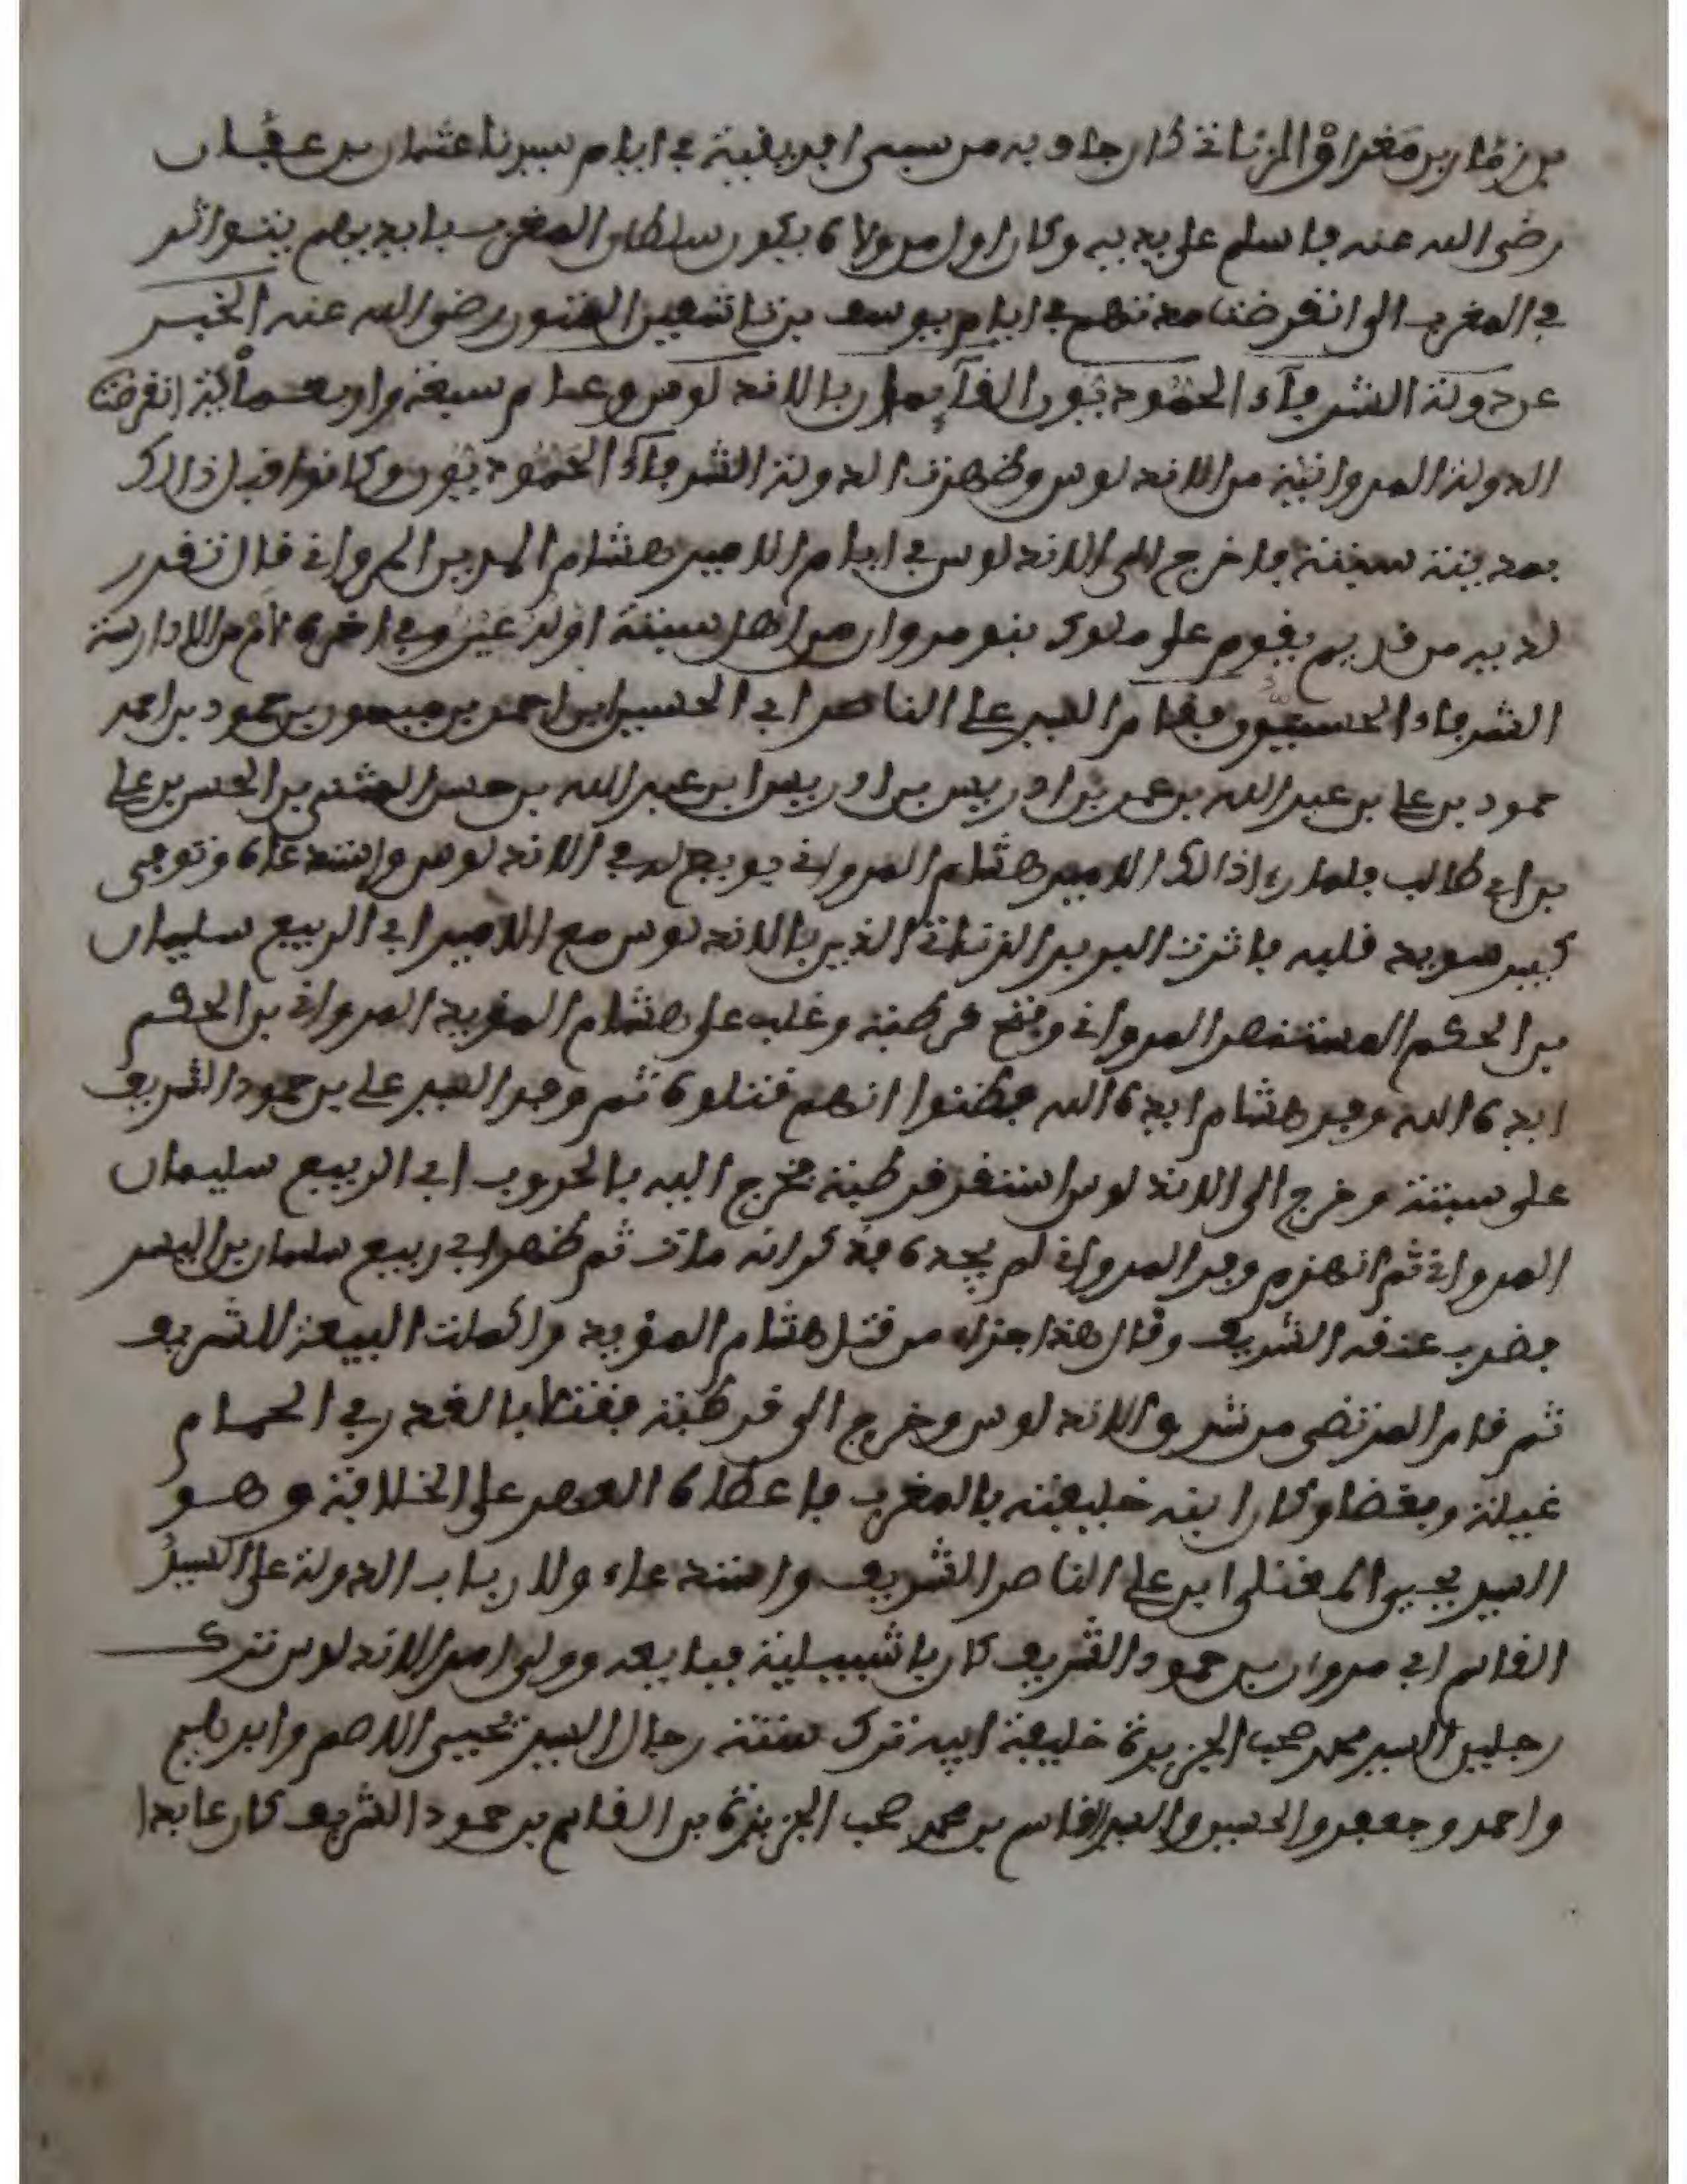 بن زمار بن مغراو الزناتي كان جاو به من سبي افريقية في ايام سيدنا عثمان بن عفان
رضي الله عنه فاسلم على يديه وكان اول من ولاه يكون سلطان المغرب بايديهم يتواتر
في المغرب الى انقرضت مدتهم في ايام يوسف بن تاشفين رضي الله عنه الخبر
عن دولة الشرفاء الحموديون القآيمان بالاندلوس وعام سبعة واربعمائة انقرضت
الدولة المروانية من الاندلوس وظهرت الدولة الشرفاء الحموديون وكانوا قبل ذالك
بمدينة سبتة فاخرج الى الاندلوس في ايام الامير هشام المرواني قال تقدر
لديه من قديم يقوم على ملوك بنو مروان من اهل سبتة اوله عين وفي اخره من الادارسة
الشرفاء الحسنيون فقام السيد علي الناصر ابي الحسين ابن احمد بن ميمون بن حمود بن احمد
حمود بن علي بن عبد الله بن عمر بن ادريس بن ادريس ابن عبد الله بن حسن المثنى بن الحسن بن علي
بن ابي طالب فلما راء ذالك الامير هشام المرواني بويع له في الاندلوس واستدعاه وتوجى
كبير سويد قلبه باثرت البربر الزناتة الذين بالاندلوس مع الامير ابي الربيع سليمان
بن الحكم المستنصر المرواني وفتح قرطبة وغلب على هشام المؤيد المرواني بن الحكم
ايده الله وجد هشام ايده الله فظنوا انهم قتلوه ثم وجد السيد علي بن حمود الشريف
على سبتة وخرج الى الاندلوس استقر قرطبة فخرج اليه بالحروب ابي الربيع سليمان
المرواني ثم انهزم وجد المرواني لم يجده فذكر انه مات ثم ظهر ابي ربيع سليمان بن اليسر
فضرب عنقه الشريف وقال هذا جزاء من قتل هشام المؤيد واكملت البيعة للشريف
ثم قام المرتضى من شرق الاندلوس وخرج الى قرطبة فقتل بالغدر في الحمام
غيلة وبغضا وكان ابنه خليفته بالمغرب فاعطاه العهر على الخلافة وهو
السيد يحيى المعتلي ابن علي الناصر الشريف واستدعاء ولارباب الدولة على السيد
القاسم ابي مروان بن حمود الشريف كان باشبيلية فبايعه وولى امر الاندلوس ترك
رجلين السيد محمد صحب الجزيرة خليفة ابيه ترك ستة رجال السيد يحيى الاصم وابراهيم
واحمد وجعفر والحسين والسيد القاسم بن محمد صحب الجزيرة بن القاسم بن حمود الشريف كان عابدا